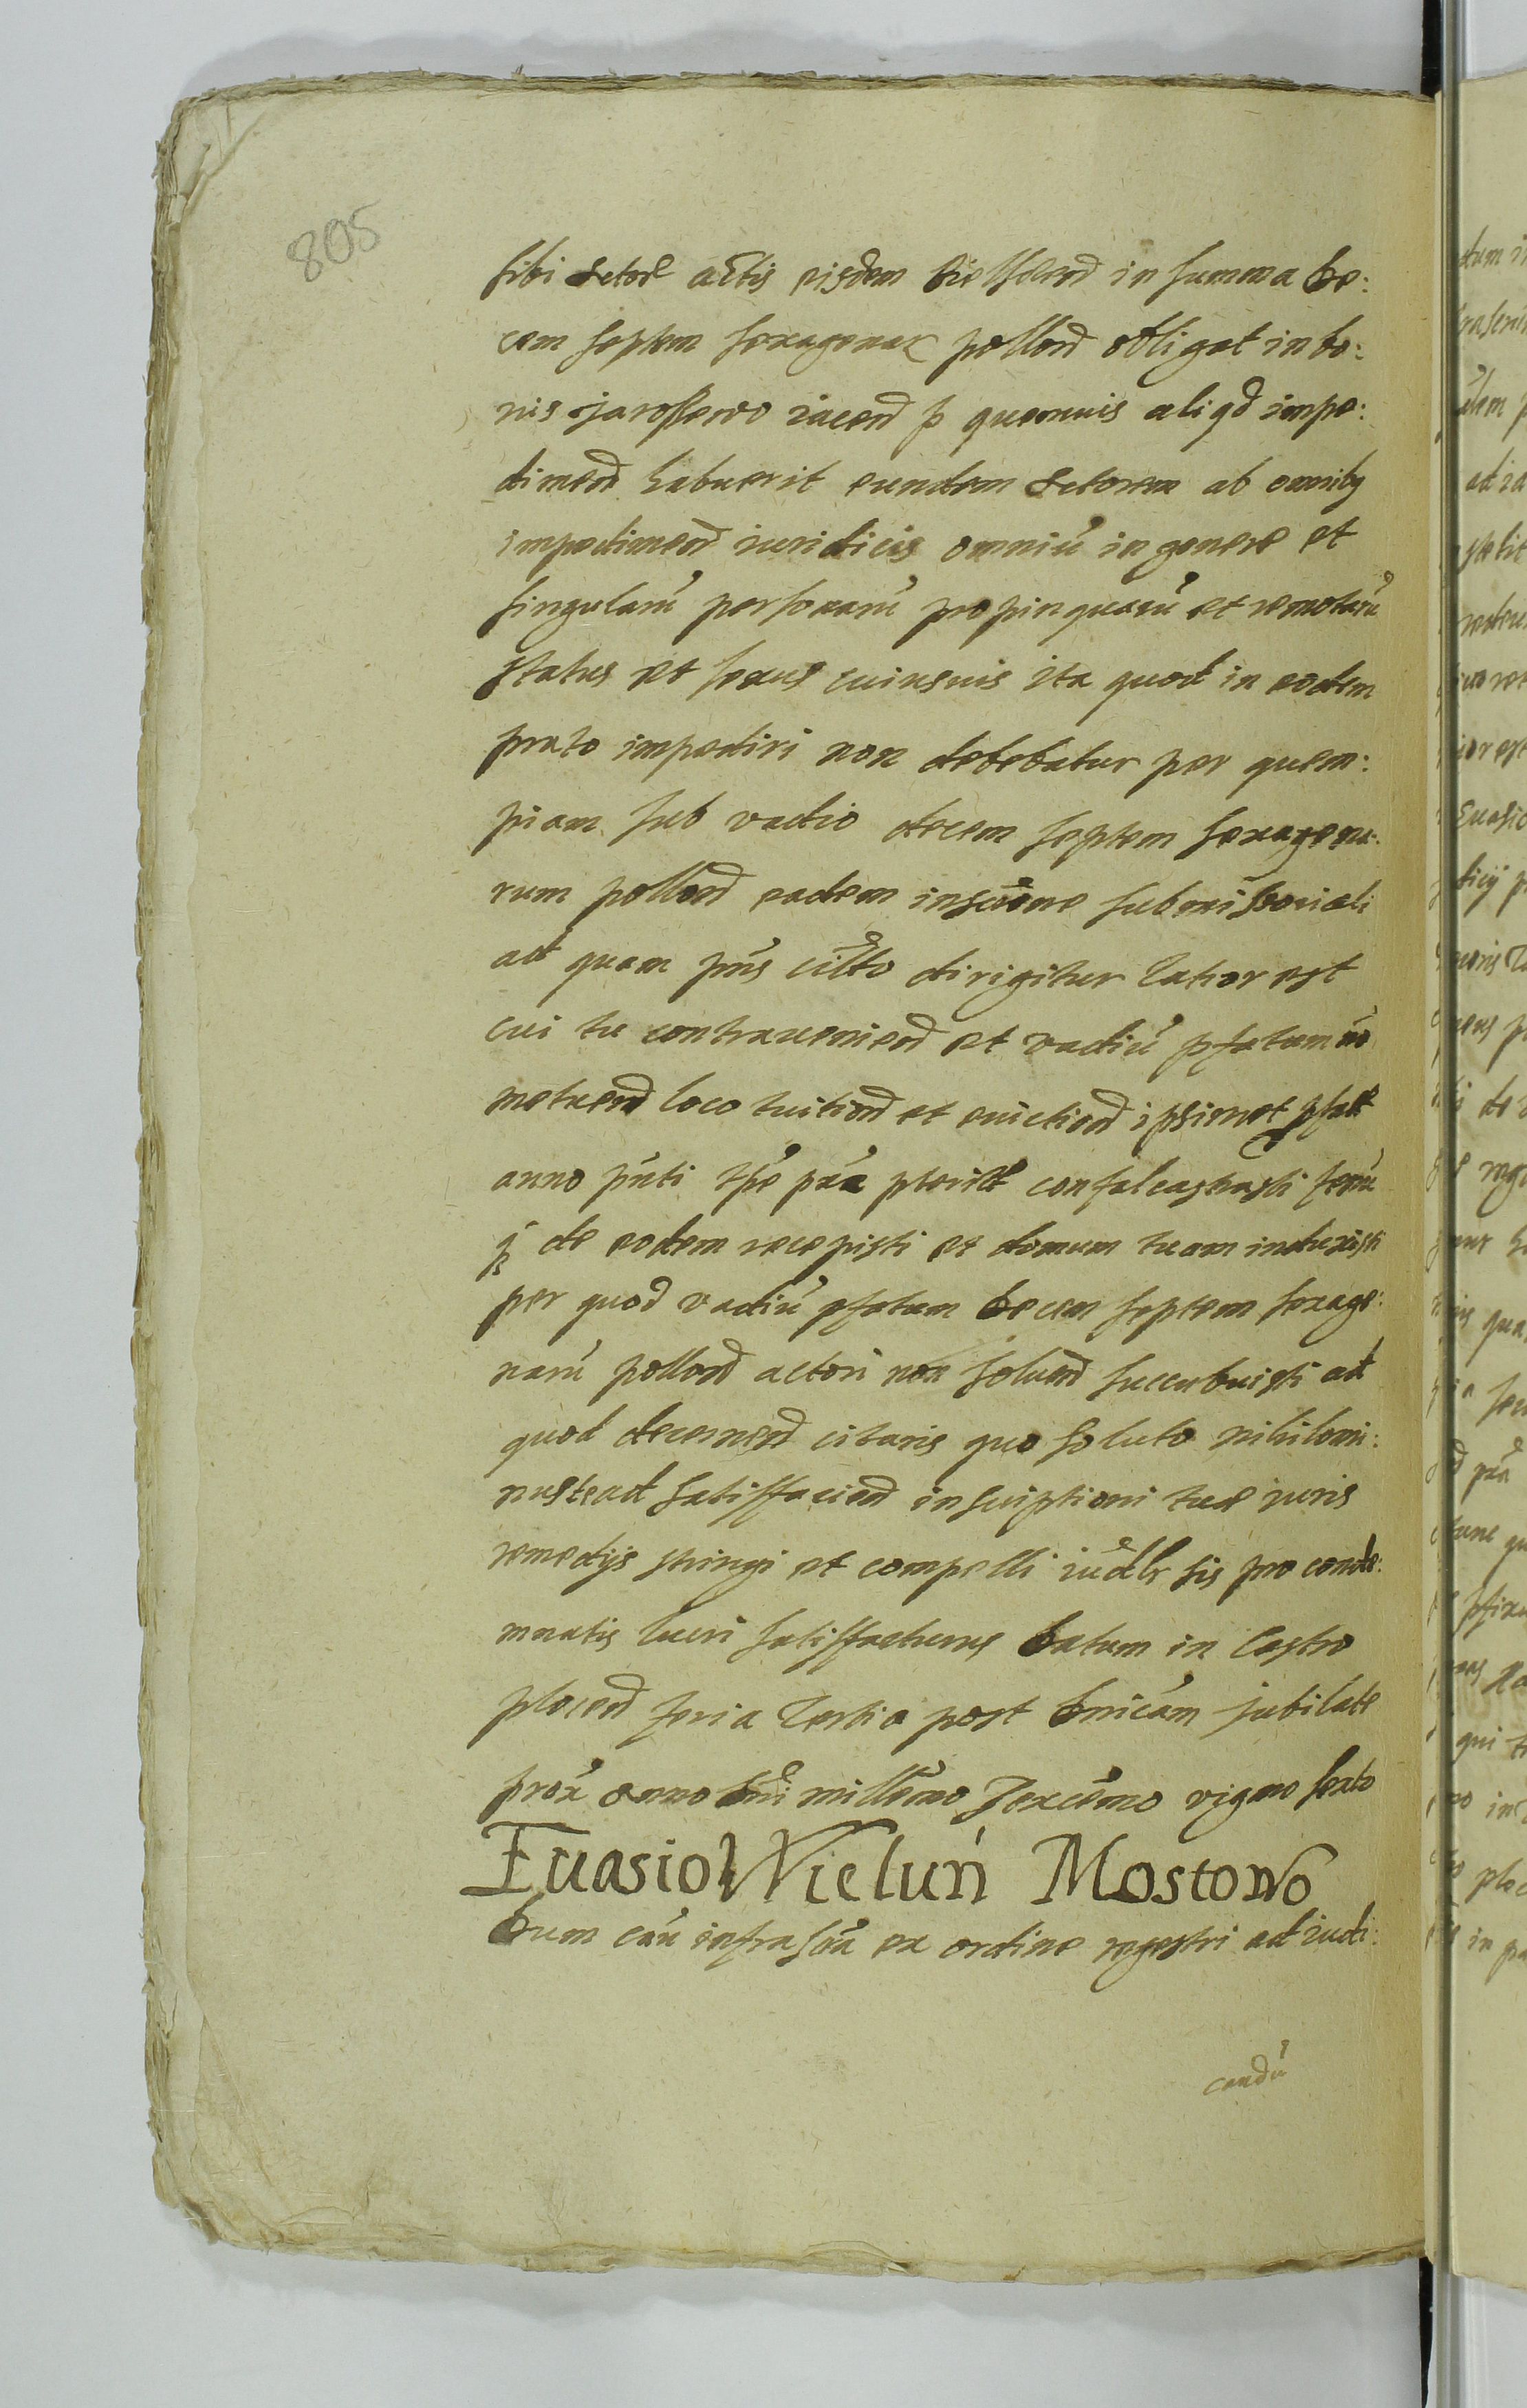 805
sibi Actore actis eisdem Bielscens in summa de:
cem septem sexagenar pollond obligat in bo:
nis jarossewo iacend p quemuis aliqd impe:
dimend habuerit eundem Actorem ab omnibq
impedimend iuridicis omniu in genere et
singularu personaru propinquaru et remotaru
status et sexus cuiusuis ita quod in eodem
prato impediri non debebatur per quem:
piam sub vadio decem septem sexagena:
rum pollond eadem inscrione submissionali
ad quam pns citto dirigitur latior est
cui tu contraueniend et vadiu pfatum no
metuend loco tuitiond et euictiond ipsimet
anno pnti tpe confalcastrasti fenu
q de eodem recepisti et domum tuam induxisti
per quod vadiu pfatum decem septem sexage:
naru pollond actori non soluend succubuisti ad
quod decernend citaris quo soluto nihilomi:
nus te ad satisfaciend inscriptioni tue iuris
remedijs stringi et compelli iudlr sis pro conde:
mnatis lucri satisfacturus Datum in Castro
plocend feria tertia post Dnicam jubilate
prox anno Dni millemo sexcemo vigmo sexto
Euasio Wielun Mostowo
Dum cau infrascra ex ordine regestri ad iudi:
candu